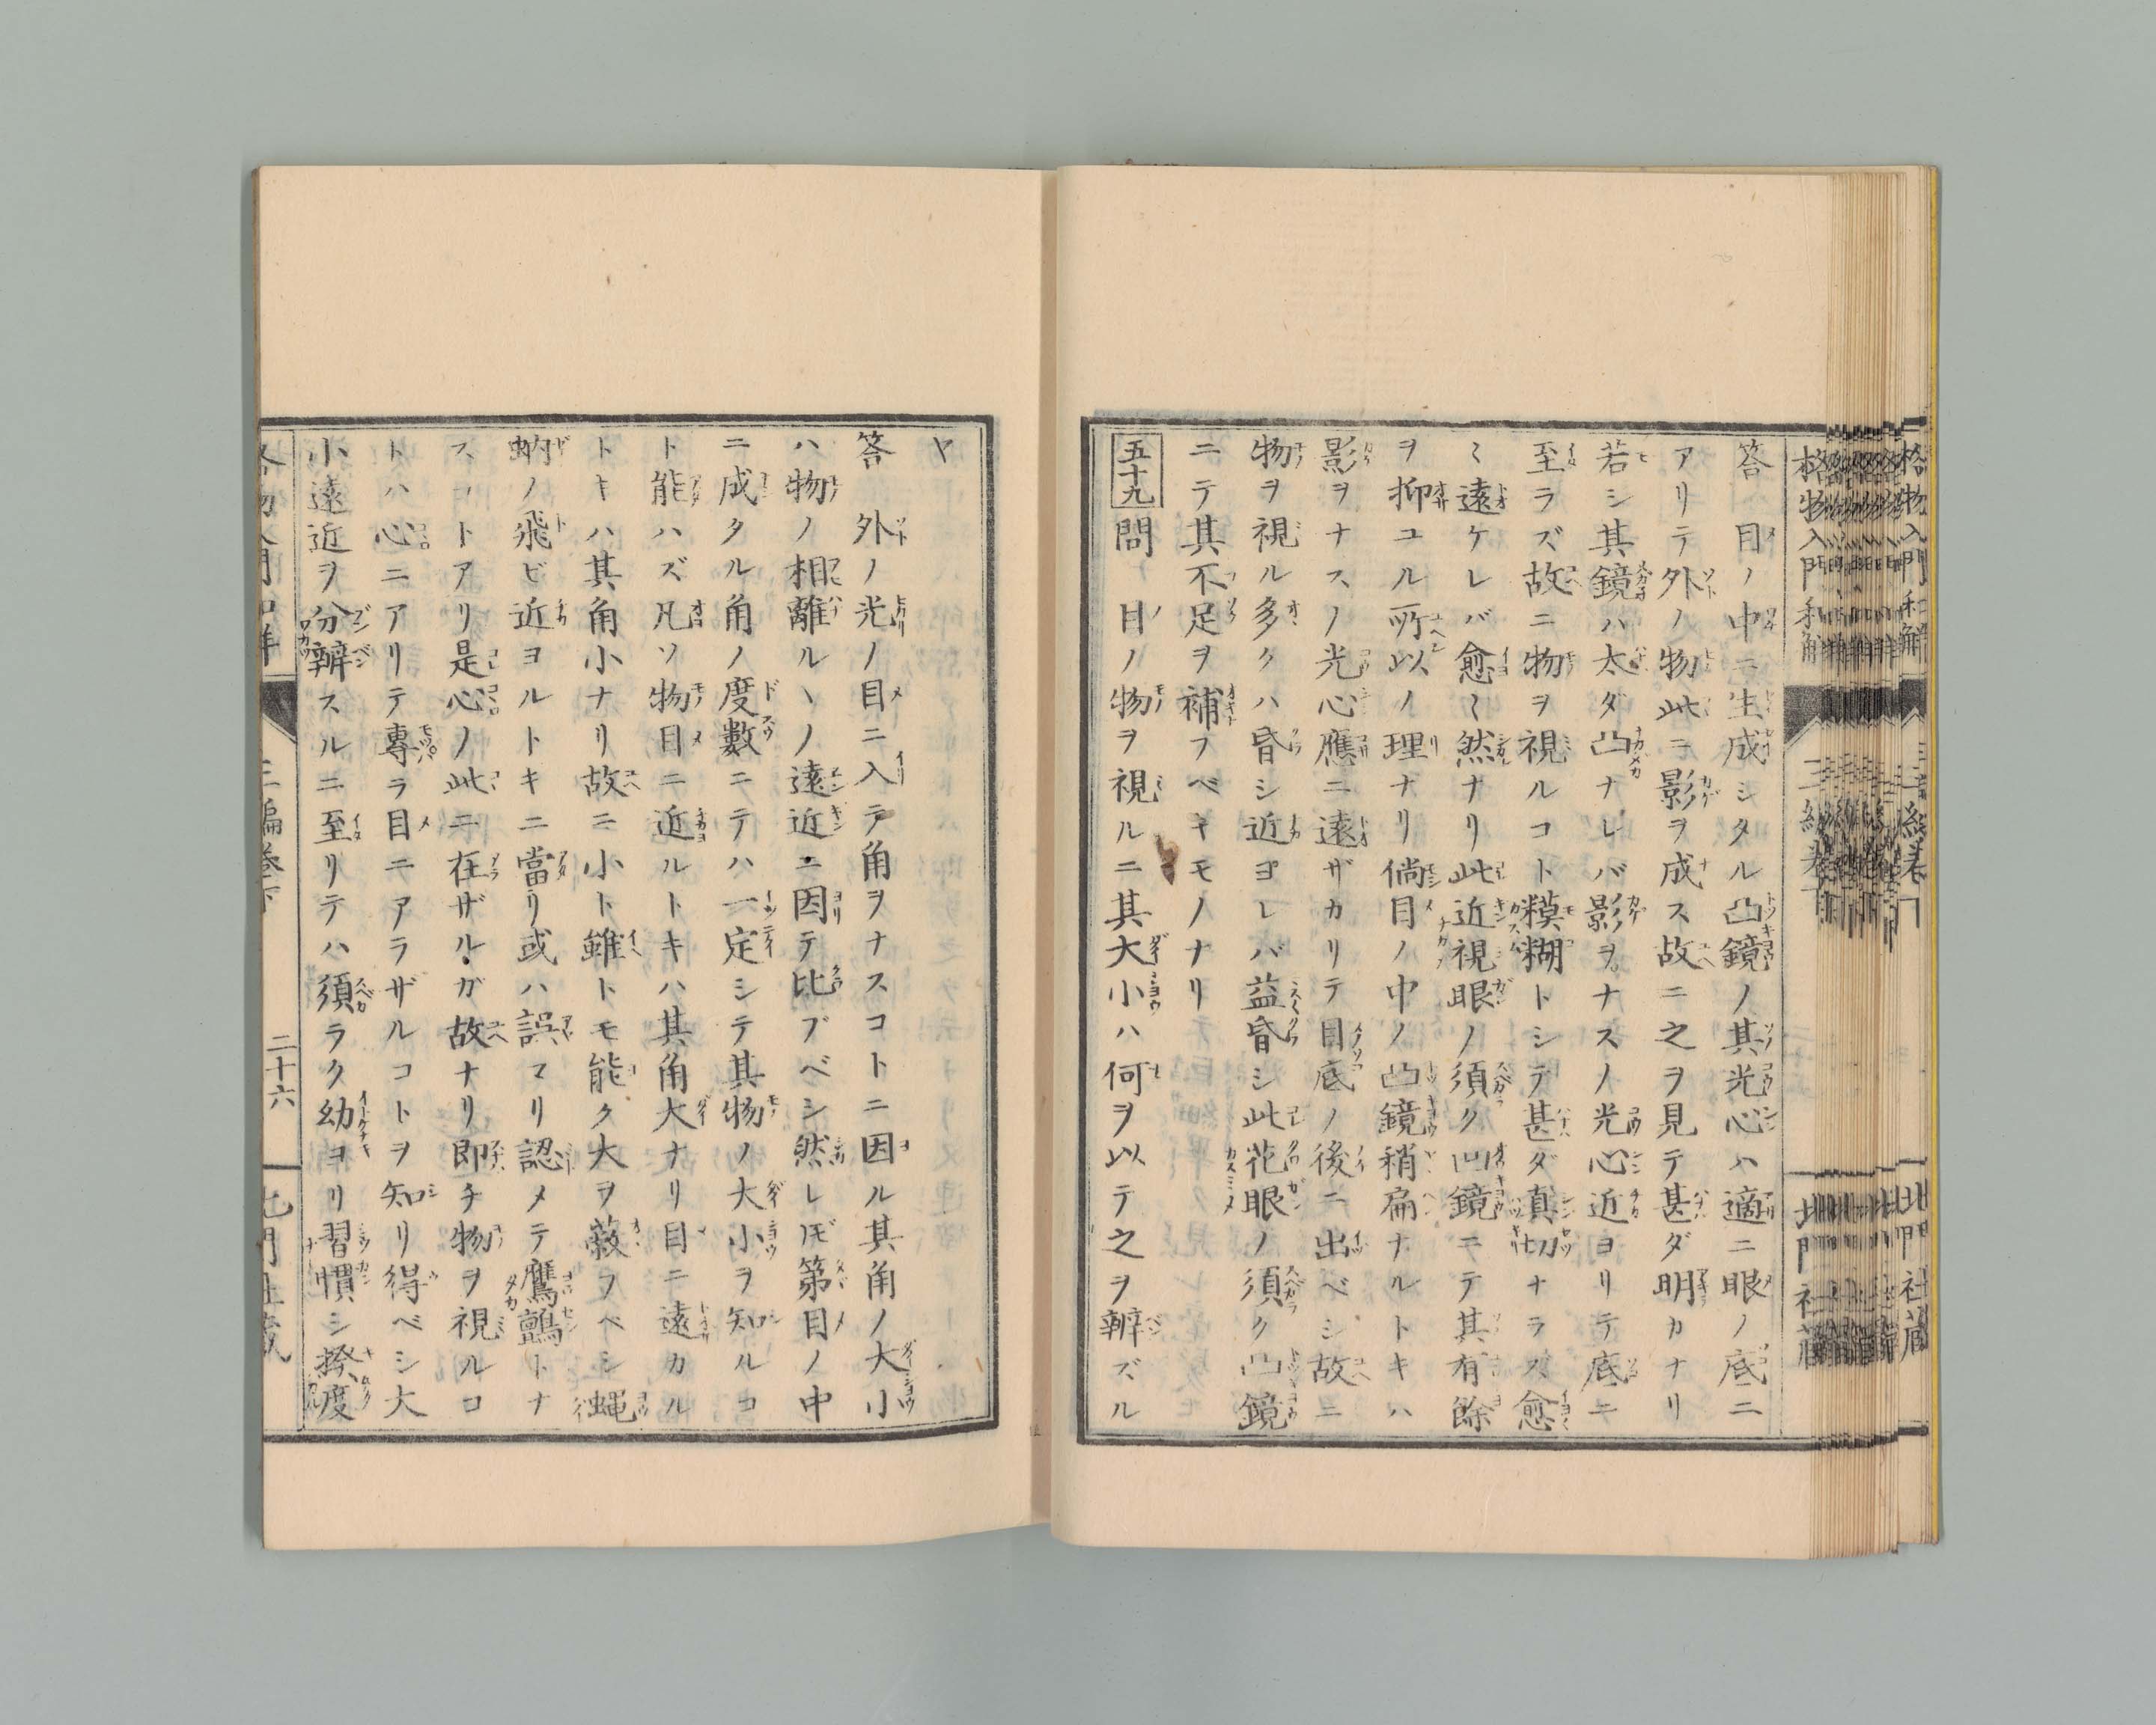 答 目ノ中ニ生成シタル凸鏡ノ其光心ハ適ニ眼ノ底ニ
アリテ外ノ物此ニ影ヲ成ス故ニ之ヲ見テ甚ダ明カナリ
若シ其鏡ハ太ダ凸ナレバ影ヲナスノ光心近ヨリテ底ニ
至ラズ故ニ物ヲ視ルコト糢糊トシテ甚ダ真切ナラズ愈
〻遠ケレバ愈〻然ナリ此近視眼ノ須ク凹鏡ニテ其有餘
ヲ抑ユル所以ノ理ナリ倘目ノ中ノ凸鏡稍扁ナルトキハ
影ヲナスノ光心應ニ遠ザカリテ目底ノ後ニ出ベシ故ニ
物ヲ視ル多クハ昏シ近ヨレバ益昏シ此花眼ノ須ク凸鏡
ニテ其不足ヲ補フベキモノナリ
五十九 問 目ノ物ヲ視ルニ其大小ハ何ヲ以テ之ヲ辨ズル
ヤ
答 外ノ光ノ目ニ入テ角ヲナスコトニ因ル其角ノ大小
ハ物ノ相離ルヽノ遠近ニ因テ比ブベシ然レ𪜈第目ノ中
ニ成タル角ノ度數ニテハ一定シテ其物ノ大小ヲ知ルコ
ト能ハズ凡ソ物目ニ近ルトキハ其角大ナリ目ニ遠カル
トキハ其角小ナリ故ニ小ト雖トモ能ク大ヲ蔽フベシ蝿
蚋ノ飛ビ近ヨルトキニ當リ或ハ誤マリ認メテ鷹鸇トナ
スコトアリ是心ノ此ニ在ザルガ故ナリ即チ物ヲ視ルコ
トハ心ニアリテ專ラ目ニアラザルコトヲ知リ得ベシ大
小遠近ヲ分辨スルニ至リテハ須ラク幼ヨリ習慣シ揆度
三編巻下
二十六
北門社藏